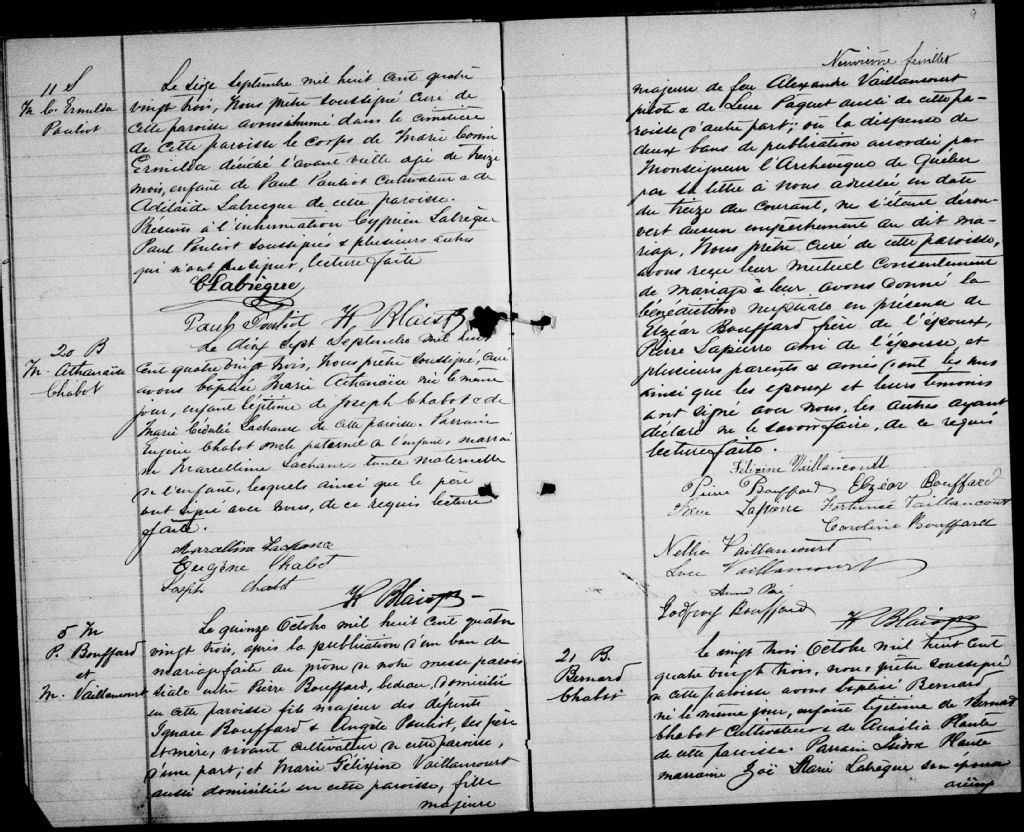 11 S
M. C. Ermilda
Pouliot
Le seize Septembre mil huit cent quatre
vingt trois, Nous prêtre soussigné curé de
cette paroisse avons inhumé dans le cimetière
de cette paroisse le corps de Marie
Ermilda décédée l'avant veille agée de treize
mois, enfant de Paul Pouliot Cultivateur & de
Adélaide Labrecque de cette paroisse.
Présents à l'inhumation Cyprien Labrèque
Paul Pouliot soussignés & plusieurs autres
qui n'ont pu signer, lecture faite
C Labrègue
Paul Pouliot H Blais ptre
20 B
M. Athanaise
Chabot
Le dix Sept Septembre mil huit
cent quatre vingt trois, Nous prêtre soussigné, curé
avons baptisé Marie Athanaise née le même
jour, enfant légitime de Joseph Chabot & de
Marie Lachance de cette paroisse. Parrain
Eugène Chabot oncle paternel de l'enfant, marrai
ne Marcelline Lachance tante maternelle
de l'enfant, lesquels ainsi que le père
ont signé avec nous, de ce requis lecture
faite.
Marcelline Lachance
Eugène Chabot
Joseph Chabot
H Blais ptre
5 M
P. Bouffard
et
M. Vaillancourt
Le quinze Octobre mil huit cent quatre
vingt trois, après la publication d'un ban de
mariage faite au prône de notre messe parois
siale entre Pierre Bouffard, bedeau, domicilié
en cette paroisse fils majeur des défunts
Ignace Bouffard & Angèle Pouliot, ses père
et mère, vivant cultivateur de cette paroisse,
d'une part; et Marie Félixine Vaillancourt
aussi domiciliée en cette paroisse, fille
majeure
9
Neuvième feuillet
majeure de feu Alexandre Vaillancourt
pilote & de Luce Paquet aussi de cette pa-
roisse d'autre part; vu la dispense de
deux bans de publication accordée par
Monseigneur l'Archevêque de Québec
par sa lettre à nous adressée en date
du treize du courant, ne s'étant décou-
vert aucun empêchement au dit ma-
riage, Nous prêtre curé de cette paroisse,
avons reçu leur mutuel Consentement
de mariage & leur avons donné la
bénédiction nuptiale en présence de
Elzéar Bouffard frère de l'époux,
Pierre Lapierre ami de l'épouse, et
plusieurs parents & amis dont les uns
ainsi que les époux et leurs témoins
ont signé avec nous, les autres ayant
déclaré ne le savoir faire, de ce requis
lecture faite.
Félixine Vaillancourt
Pierre Bouffard Elzéar Bouffard
Pierre Lapierre Fortunée Vaillancourt
Caroline Bouffard
Nellie Vaillancourt
Luce Vaillancourt
Godfroy Bouffard H Blais ptre
21 B.
Bernard
Chabot
Le vingt trois Octobre mil huit cent
quatre vingt trois, nous prêtre soussigné
de cette paroisse avons baptisé Bernard
né le même jour, enfant légitime de Bernard
Chabot Cultivateur & de Aurélia Plante
de cette paroisse. Parrain Isidore Plante
marraine Zoë Marie Labrègue son épouse